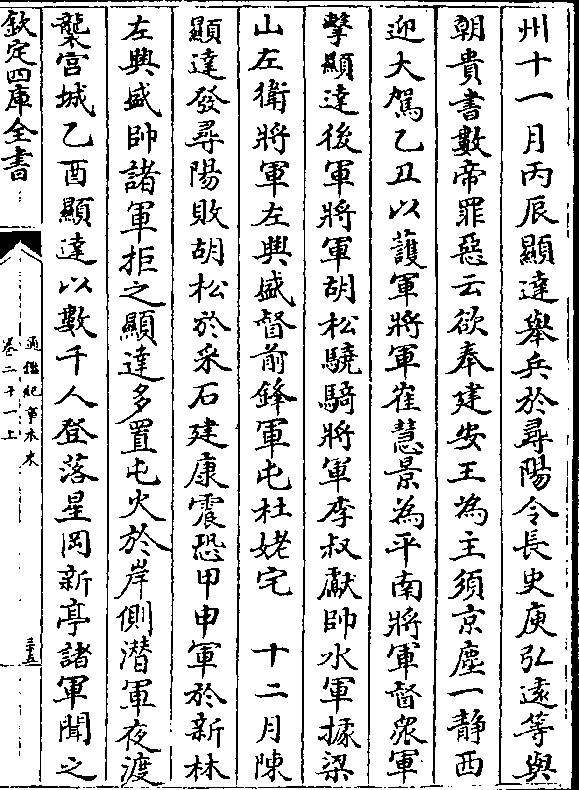 州十一月丙辰顯達舉兵於尋陽令長史庾弘遠等與
朝貴書數帝罪惡云欲奉建安王為主須京塵一靜西
迎大駕乙丑以護軍將軍崔慧景為平南將軍督衆軍
擊顯達後軍將軍胡松驍騎將軍李叔獻帥水軍據梁
山左衛將軍左興盛督前鋒軍屯杜姥宅　十二月陳
顯達發尋陽敗胡松於采石建康震恐甲申軍於新林
左興盛帥諸軍拒之顯達多置屯火於岸側潛軍夜渡
襲宮城乙酉顯達以數千人登落星岡新亭諸軍聞之
欽定四庫全書
通鑑紀事本末
卷二十一上
三十五